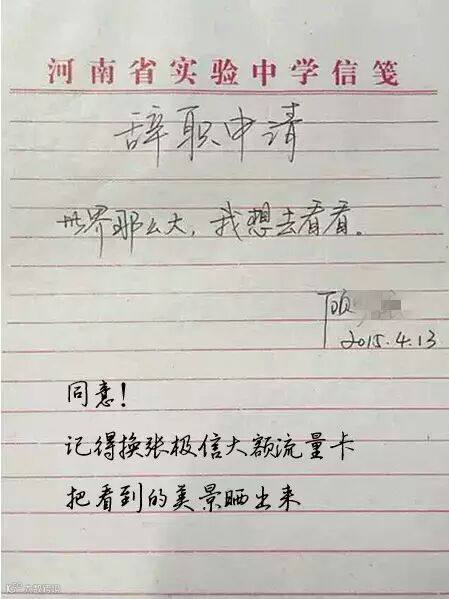 河南省实验中学信笺
辞职申请
世界那么大，我想去看看。
顾
2015.4.13
同意！
记得换张极信大额流量卡
把看到的美景晒出来